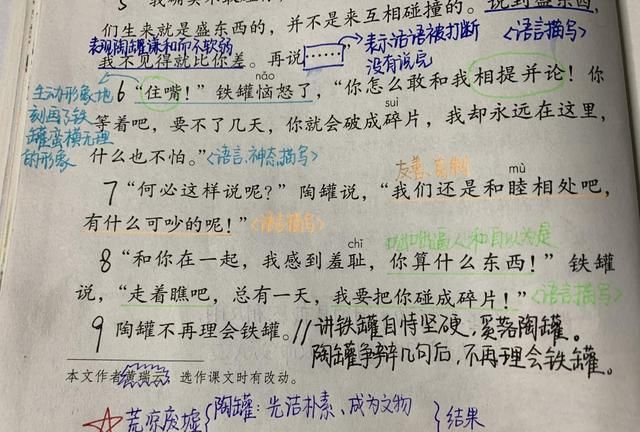 们生来就是盛东西的，并不是来互相碰撞的。说到盛东西，
表现陶罐谦和而不软弱
我不见得就比你差。再说……”
表示话语被打断
没有说完
〈语言描写〉
生动形象地
刻画了铁
罐蛮横无理
的形象
nǎo
6 “住嘴！”铁罐恼怒了，“你怎么敢和我相提并论！你
suì
等着吧，要不了几天，你就会破成碎片，我却永远在这里，
什么也不怕。”〈语言、神态描写〉
友善、克制
mù
7 “何必这样说呢？”陶罐说，“我们还是和睦相处吧，
有什么可吵的呢！”〈语言描写〉
咄咄逼人和自以为是
chǐ
8 “和你在一起，我感到羞耻，你算什么东西！”铁罐
说，“走着瞧吧，总有一天，我要把你碰成碎片！”〈语言描写〉
9 陶罐不再理会铁罐。//讲铁罐自恃坚硬，奚落陶罐。
陶罐争辩几句后，不再理会铁罐。
本文作者黄瑞云，选作课文时有改动。
荒凉废墟{陶罐：光洁朴素、成为文物}结果